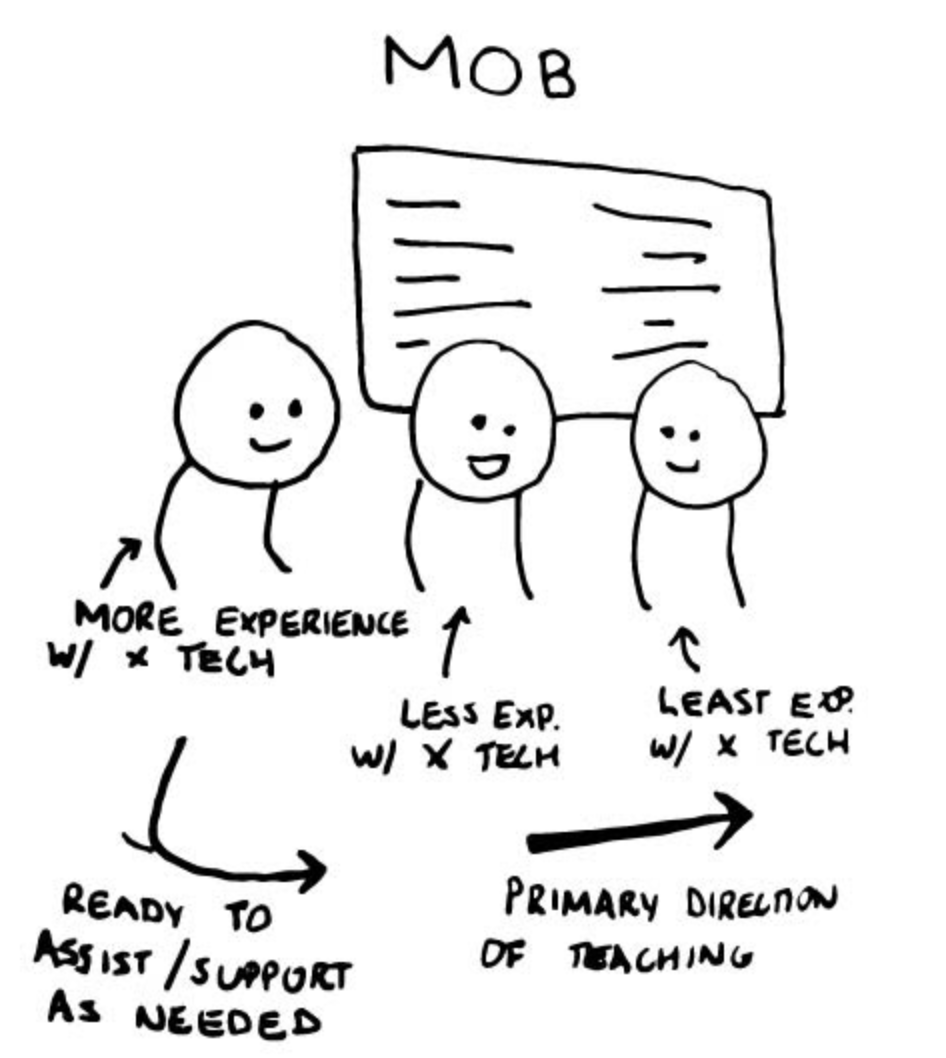 MOB
MORE EXPERIENCE
W/ X TECH
LESS EXP.
W/ X TECH
LEAST EXP.
W/ X TECH
READY TO
ASSIST/SUPPORT
AS NEEDED
PRIMARY DIRECTION
OF TEACHING